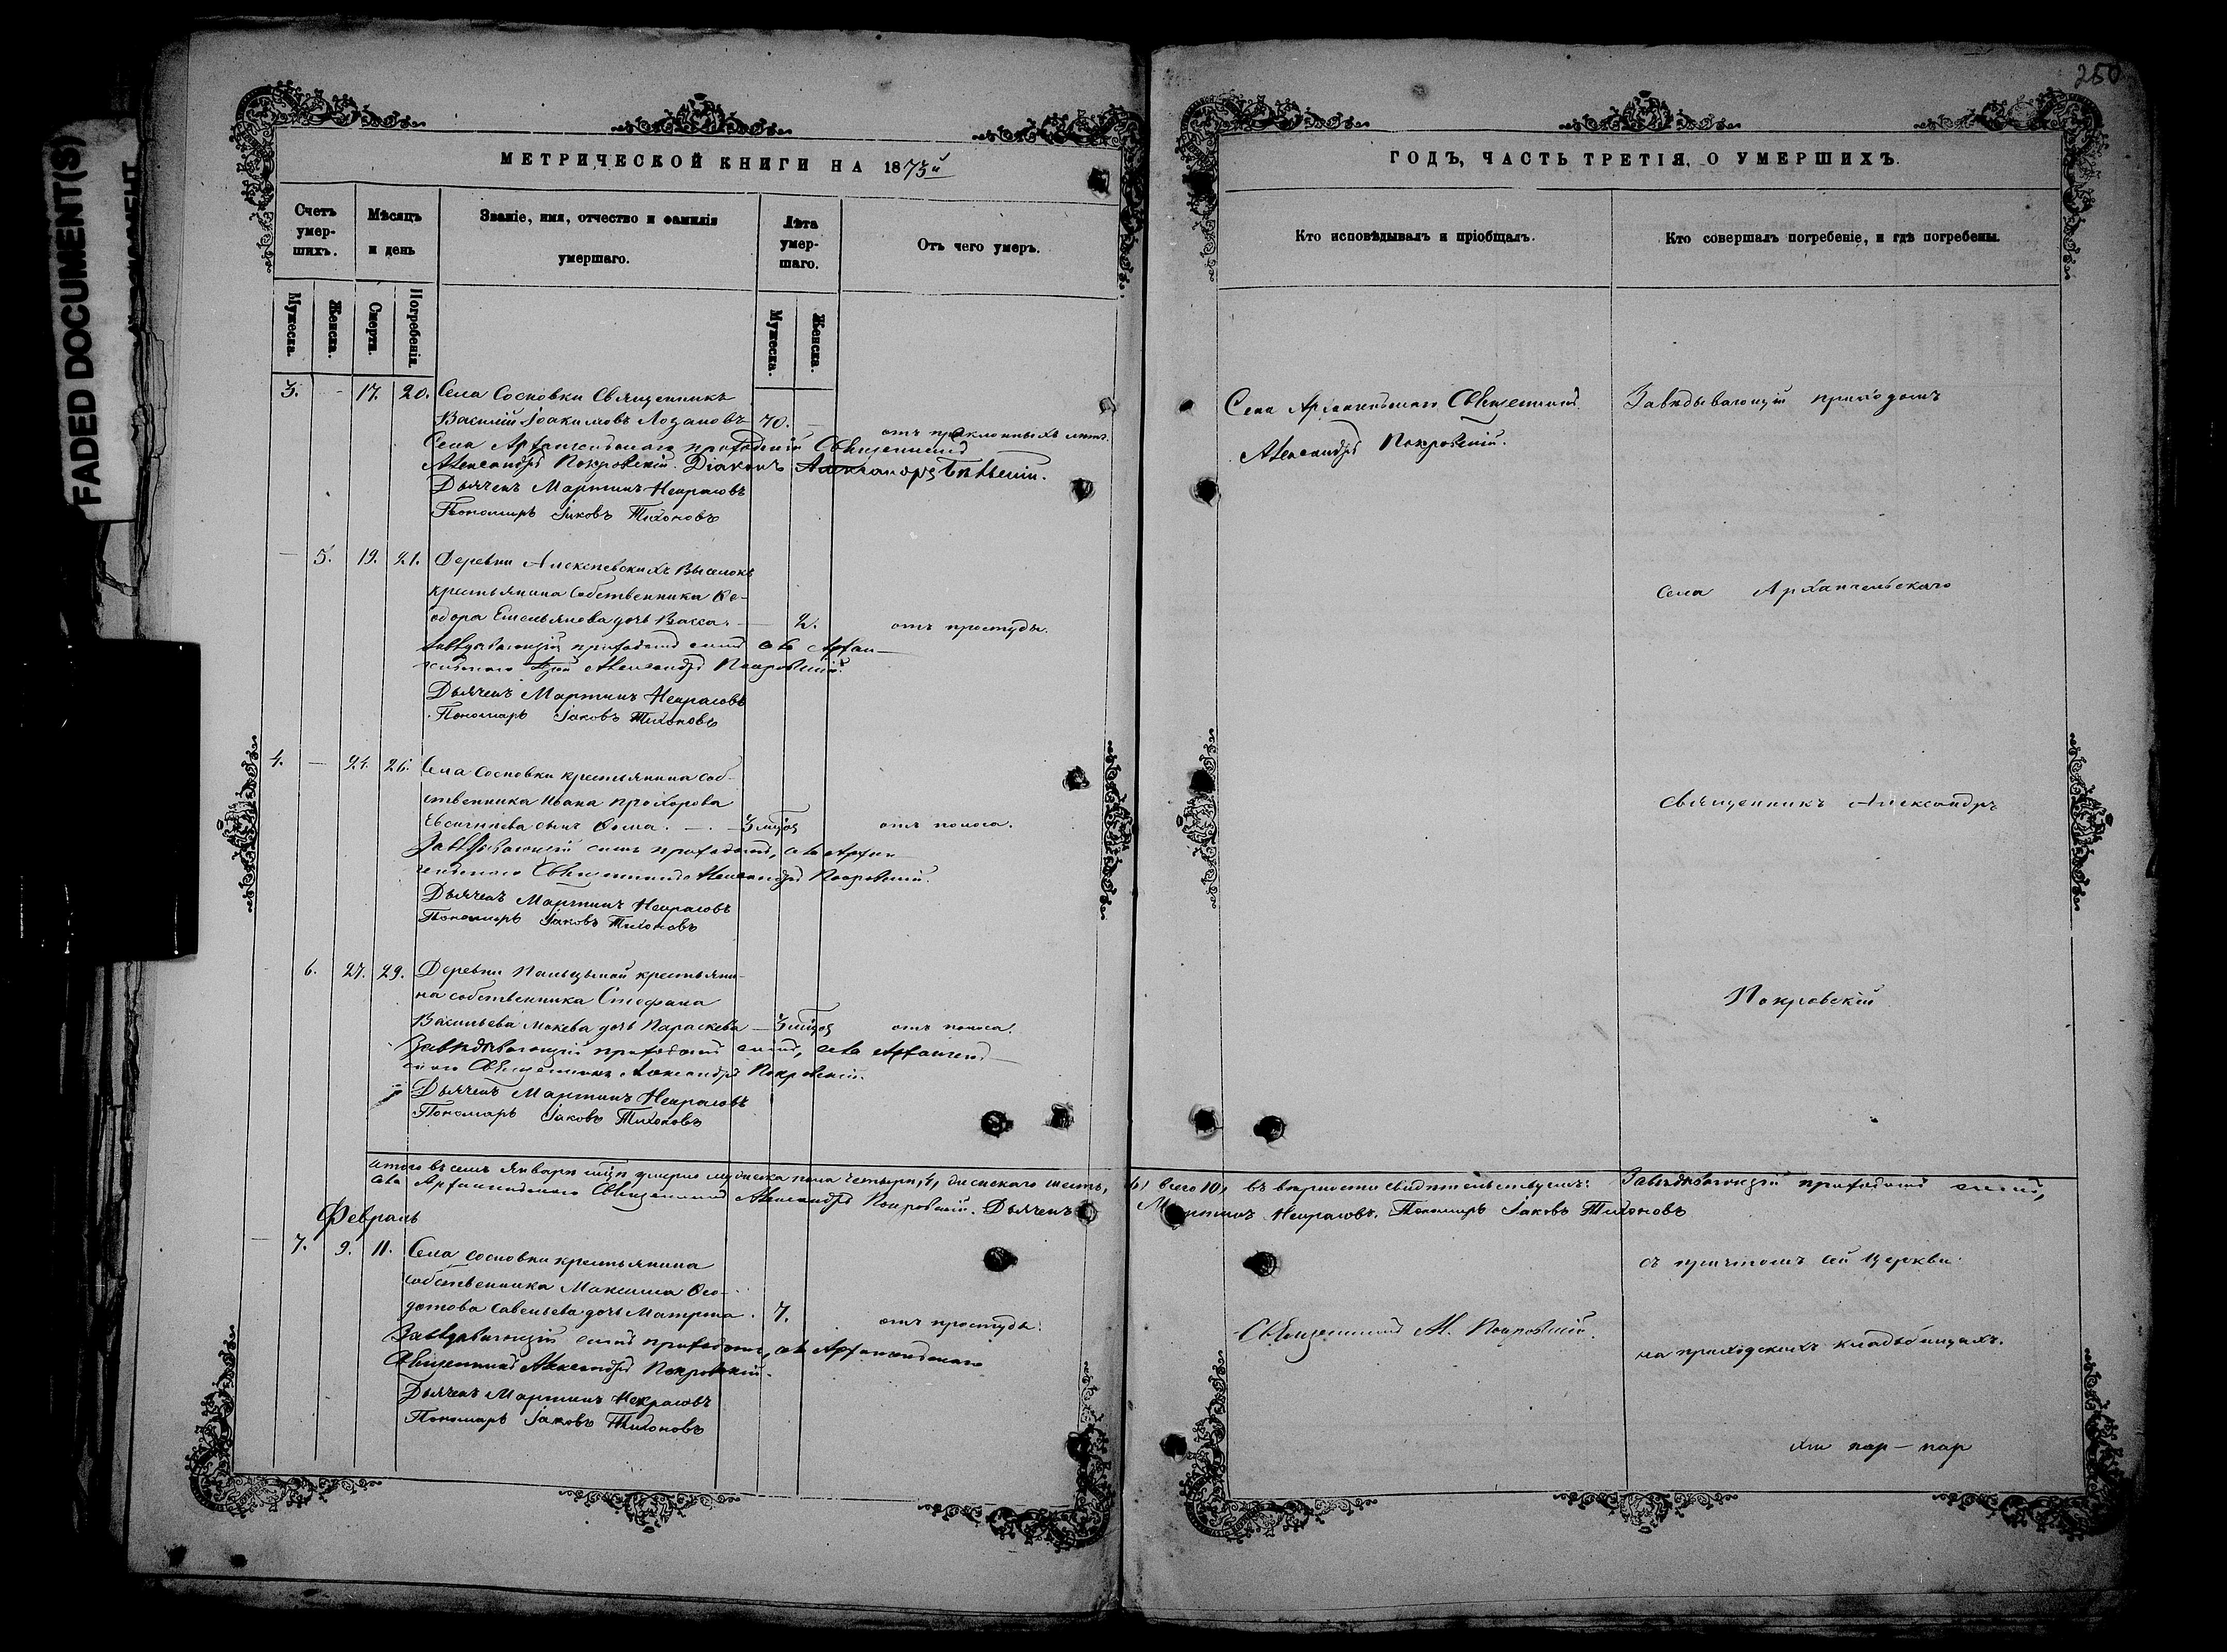 FADED DOCUMENT(S)
250
МЕТРИЧЕСКОЙ КНИГИ НА 1875й
Счетъ умер-шихъ.
Мѣсяцъ и день
Званіе, имя, отчество и фамилія умершаго.
Лѣта умер-шаго.
Отъ чего умеръ.
Мужеска.
Женска.
Смерти.
Погребенія.
Мужеска.
Женска.
3. - 17. 20. Села Сосновки Священникъ
Василій Іоакимовъ Лозановъ 70. отъ преклонныхъ лѣтъ.
Села Архангельскаго приходскій Священникъ
Александръ Покровскій. Діаконъ Александръ
Дьячекъ Мартинъ Некрасовъ
Пономарь Іаковъ Тихоновъ
— 5. 19. 21. Деревни Алексѣевскихъ Выселокъ
крестьянина собственника Ѳе-
одора Емельянова дочь Васса. — 2. отъ простуды.
Завѣдывающій приходомъ симъ, села Архан-
гельскаго Александръ Покровскій.
Дьячекъ Мартинъ Некрасовъ
Пономарь Іаковъ Тихоновъ
4. — 24. 26. Села Сосновки крестьянина соб-
ственника Ивана Прохорова
Евсигнѣева сынъ Ѳома. — 3 отъ поноса.
Завѣдывающій симъ приходомъ, села Архан-
гельскаго Священникъ Александръ Покровскій.
Дьячекъ Мартинъ Некрасовъ
Пономарь Іаковъ Тихоновъ
6. 27. 29. Деревни крестьяни-
на собственника Стефана
Васильева Мокева дочь Параскева — 3 отъ поноса.
Завѣдывающій приходомъ симъ, села Архангель-
скаго Священникъ Александръ Покровскій.
Дьячекъ Мартинъ Некрасовъ
Пономарь Іаковъ Тихоновъ
Итого въ семъ Январѣ умерло мужеска пола четыри, 4, женскаго шесть,
села Архангельскаго Священникъ Александръ Покровскій. Дьячекъ
Февраль
— 7. 9. 11. Села Сосновки крестьянина
собственника Максима Ѳео-
дотова Савельева дочь Матрона. 7. отъ простуды.
Завѣдывающій симъ приходомъ, села Архангельскаго
Священникъ Александръ Покровскій.
Дьячекъ Мартинъ Некрасовъ
Пономарь Іаковъ Тихоновъ
ГОДЪ, ЧАСТЬ ТРЕТІЯ, О УМЕРШИХЪ.
Кто исповѣдывалъ и пріобщалъ.
Кто совершалъ погребеніе, и гдѣ погребены.
Села Архангельскаго Священникъ
Александръ Покровскій.
Завѣдывающій приходомъ
села Архангельскаго
священникъ Александръ
Покровскій
6, всего 10, въ вѣрности свидѣтельствуемъ: Завѣдывающій приходомъ симъ,
Мартинъ Некрасовъ. Пономарь Іаковъ Тихоновъ
съ причтомъ сей церкви
Священникъ Ал. Покровскій.
на приходскихъ кладбищахъ.